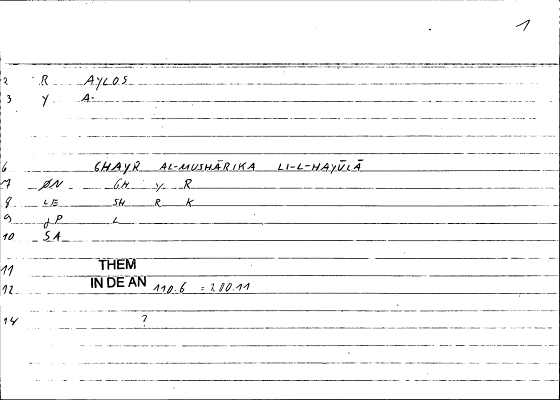 1
2 R AYLOS
3 Y A-
6 GHAYR AL-MUSHĀRIKA LI-L-HAYŪLĀ
7 ØN GH Y R
8 LE SH R K
9 JP L
10 SA
11 THEM
12 IN DE AN 110.6 = 200.11
14 ?